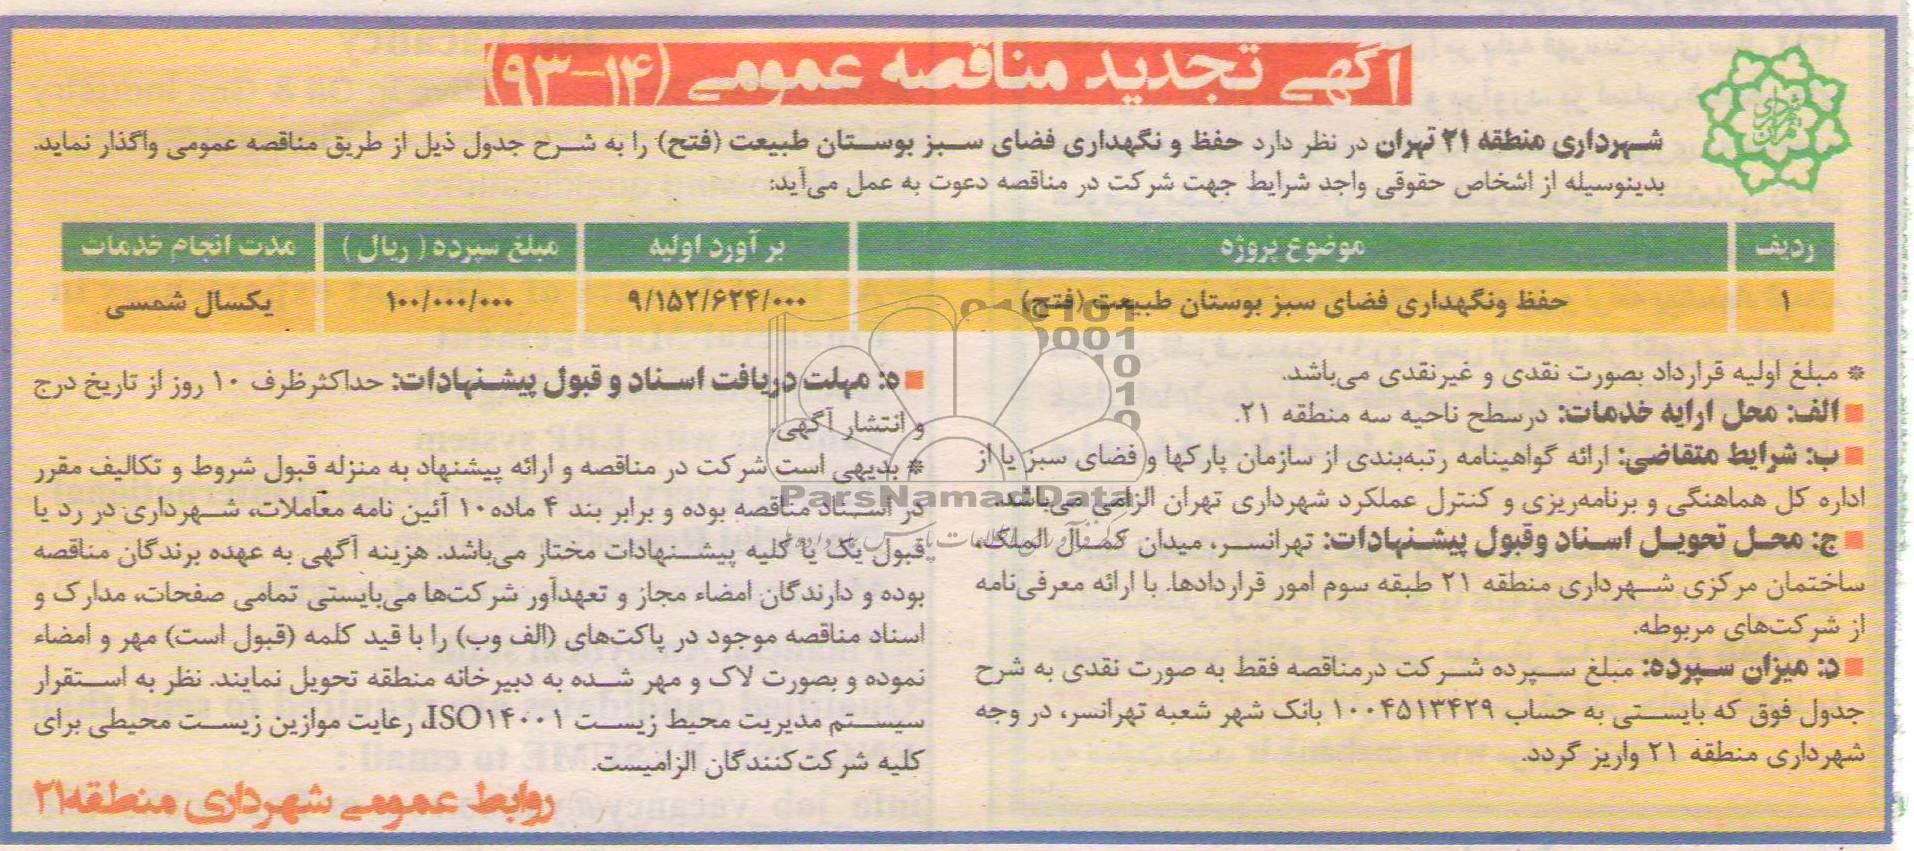 آگهی تجدید مناقصه عمومی (۱۴-۹۳)
شهرداری تهران
شهرداری منطقه ۲۱ تهران در نظر دارد حفظ و نگهداری فضای سبز بوستان طبیعت (فتح) را به شرح جدول ذیل از طریق مناقصه عمومی واگذار نماید.
بدینوسیله از اشخاص حقوقی واجد شرایط جهت شرکت در مناقصه دعوت به عمل می‌آید:
ردیف موضوع پروژه برآورد اولیه مبلغ سپرده (ریال) مدت انجام خدمات
۱ حفظ ونگهداری فضای سبز بوستان طبیعت (فتح) ۹/۱۵۲/۶۲۴/۰۰۰ ۱۰۰/۰۰۰/۰۰۰ یکسال شمسی
* مبلغ اولیه قرارداد بصورت نقدی و غیرنقدی می‌باشد.
■ الف: محل ارایه خدمات: درسطح ناحیه سه منطقه ۲۱.
■ ب: شرایط متقاضی: ارائه گواهینامه رتبه‌بندی از سازمان پارکها و فضای سبز یا از
اداره کل هماهنگی و برنامه‌ریزی و کنترل عملکرد شهرداری تهران الزامی می‌باشد.
■ ج: محل تحویل اسناد وقبول پیشنهادات: تهرانسر، میدان کمال الملک،
ساختمان مرکزی شهرداری منطقه ۲۱ طبقه سوم امور قراردادها. با ارائه معرفی‌نامه
از شرکت‌های مربوطه.
■ د: میزان سپرده: مبلغ سپرده شرکت درمناقصه فقط به صورت نقدی به شرح
جدول فوق که بایستی به حساب ۱۰۰۴۵۱۳۴۲۹ بانک شهر شعبه تهرانسر، در وجه
شهرداری منطقه ۲۱ واریز گردد.
■ ه: مهلت دریافت اسناد و قبول پیشنهادات: حداکثرظرف ۱۰ روز از تاریخ درج
و انتشار آگهی.
* بدیهی است شرکت در مناقصه و ارائه پیشنهاد به منزله قبول شروط و تکالیف مقرر
در اسناد مناقصه بوده و برابر بند ۴ ماده۱۰ آئین نامه معاملات، شهرداری در رد یا
قبول یک یا کلیه پیشنهادات مختار می‌باشد. هزینه آگهی به عهده برندگان مناقصه
بوده و دارندگان امضاء مجاز و تعهدآور شرکت‌ها می‌بایستی تمامی صفحات، مدارک و
اسناد مناقصه موجود در پاکت‌های (الف وب) را با قید کلمه (قبول است) مهر و امضاء
نموده و بصورت لاک و مهر شده به دبیرخانه منطقه تحویل نمایند. نظر به استقرار
سیستم مدیریت محیط زیست ISO۱۴۰۰۱، رعایت موازین زیست محیطی برای
کلیه شرکت‌کنندگان الزامیست.
روابط عمومی شهرداری منطقه۲۱
ParsNamadData